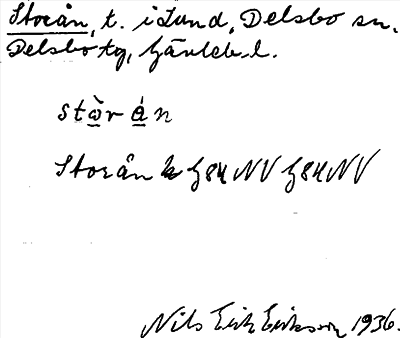 Storån, t. i Lund, Delsbo sn.
Delsbo tg, Gävleb. l.
stò̠r á̠ n
Storån k G84NV G84NV
Nils Erik Eriksson 1936.